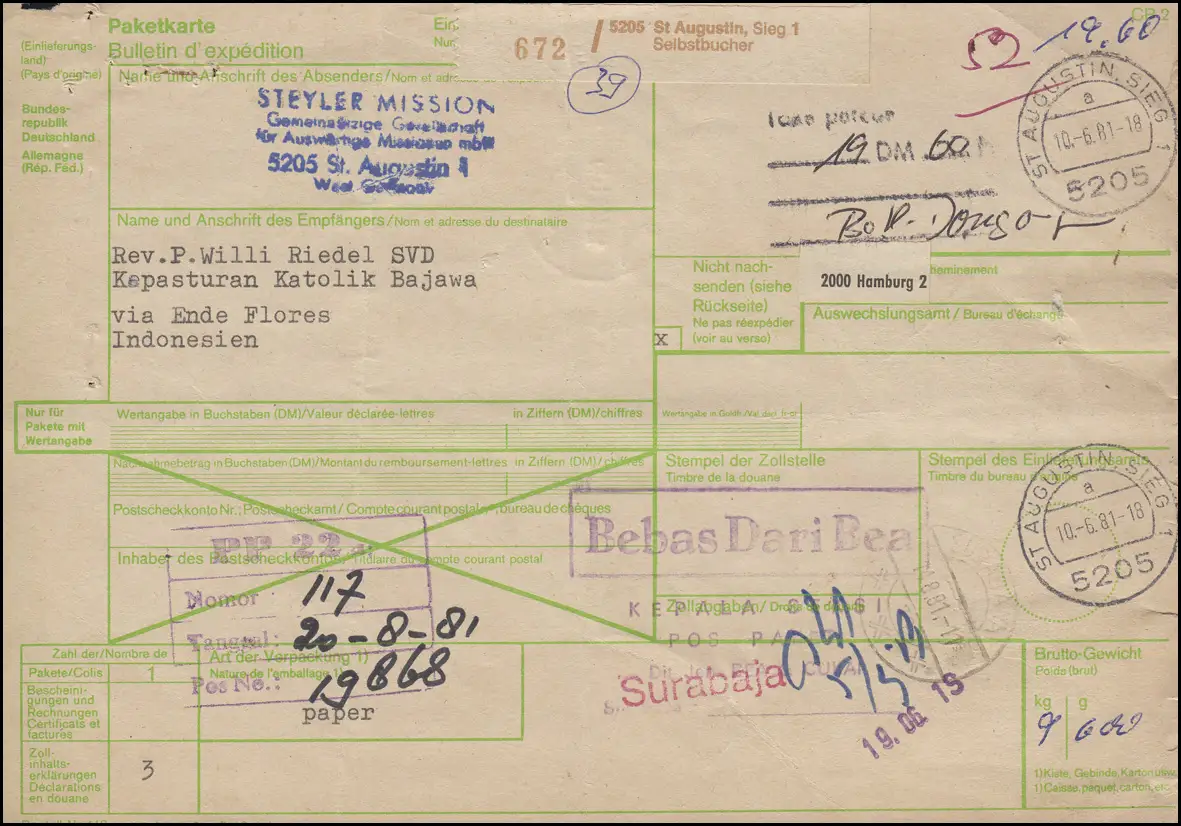 CP 2
Paketkarte
Bulletin d'expédition
(Einlieferungs-
land)
(Pays d'origine)
Bundes-
republik
Deutschland
Allemagne
(Rép. Féd.)
672
5205 St Augustin, Sieg 1
Selbstbucher
52
19,60
39
Name und Anschrift des Absenders/Nom et
STEYLER MISSION
Gemeinnützige Gesellschaft
für Auswärtige Missionen mbH
5205 St. Augustin 1
West Germany
19 DM 60
ST AUGUSTIN, SIEG 1
a
10.-6.81-18
5205
Name und Anschrift des Empfängers/Nom et adresse du destinataire
Rev.P.Willi Riedel SVD
Kepasturan Katolik Bajawa
via Ende Flores
Indonesien
Nicht nach-
senden (siehe
Rückseite)
Ne pas réexpédier
(voir au verso)
x
2000 Hamburg 2
Auswechslungsamt / Bureau d'échange
Nur für
Pakete mit
Wertangabe
Wertangabe in Buchstaben (DM)/Valeur déclarée-lettres
in Ziffern (DM)/chiffres
Nachnahmebetrag in Buchstaben (DM)/Montant du remboursement-lettres
in Ziffern (DM)/chiffres
Postscheckkonto Nr.; Postscheckamt / Compte courant postal et bureau de chèques
Inhaber des Postscheckkontos/Titulaire du compte courant postal
Stempel der Zollstelle
Timbre de la douane
Stempel des Einlieferungsamts
Timbre du bureau d'origine
Bebas Dari Bea
ST AUGUSTIN, SIEG 1
a
10.-6.81-18
5205
PP 22
Nomor 117
Tanggal: 20-8-81
Pos No.: 19868
Zollangaben/
KEPALA SEKSI
Surabaja
19.06 19
Zahl der/Nombre de
Pakete/Colis
1
Bescheini-
gungen und
Rechnungen
Certificats et
factures
Zoll-
inhalts-
erklärungen
Déclarations
en douane
3
Art der Verpackung 1)
Nature de l'emballage
paper
Brutto-Gewicht
Poids (brut)
kg
g
9
600
1)Kiste, Gebinde, Karton usw.
1)Caisse, paquet, carton, etc.